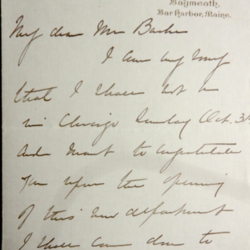 Baymeath,
Bar Harbor, Maine.
My dear Mr
I am very sorry
that I shall not be
in Chicago Sunday Oct. 3rd
and want to congratulate
you upon the opening
of this new department
I shall come down to